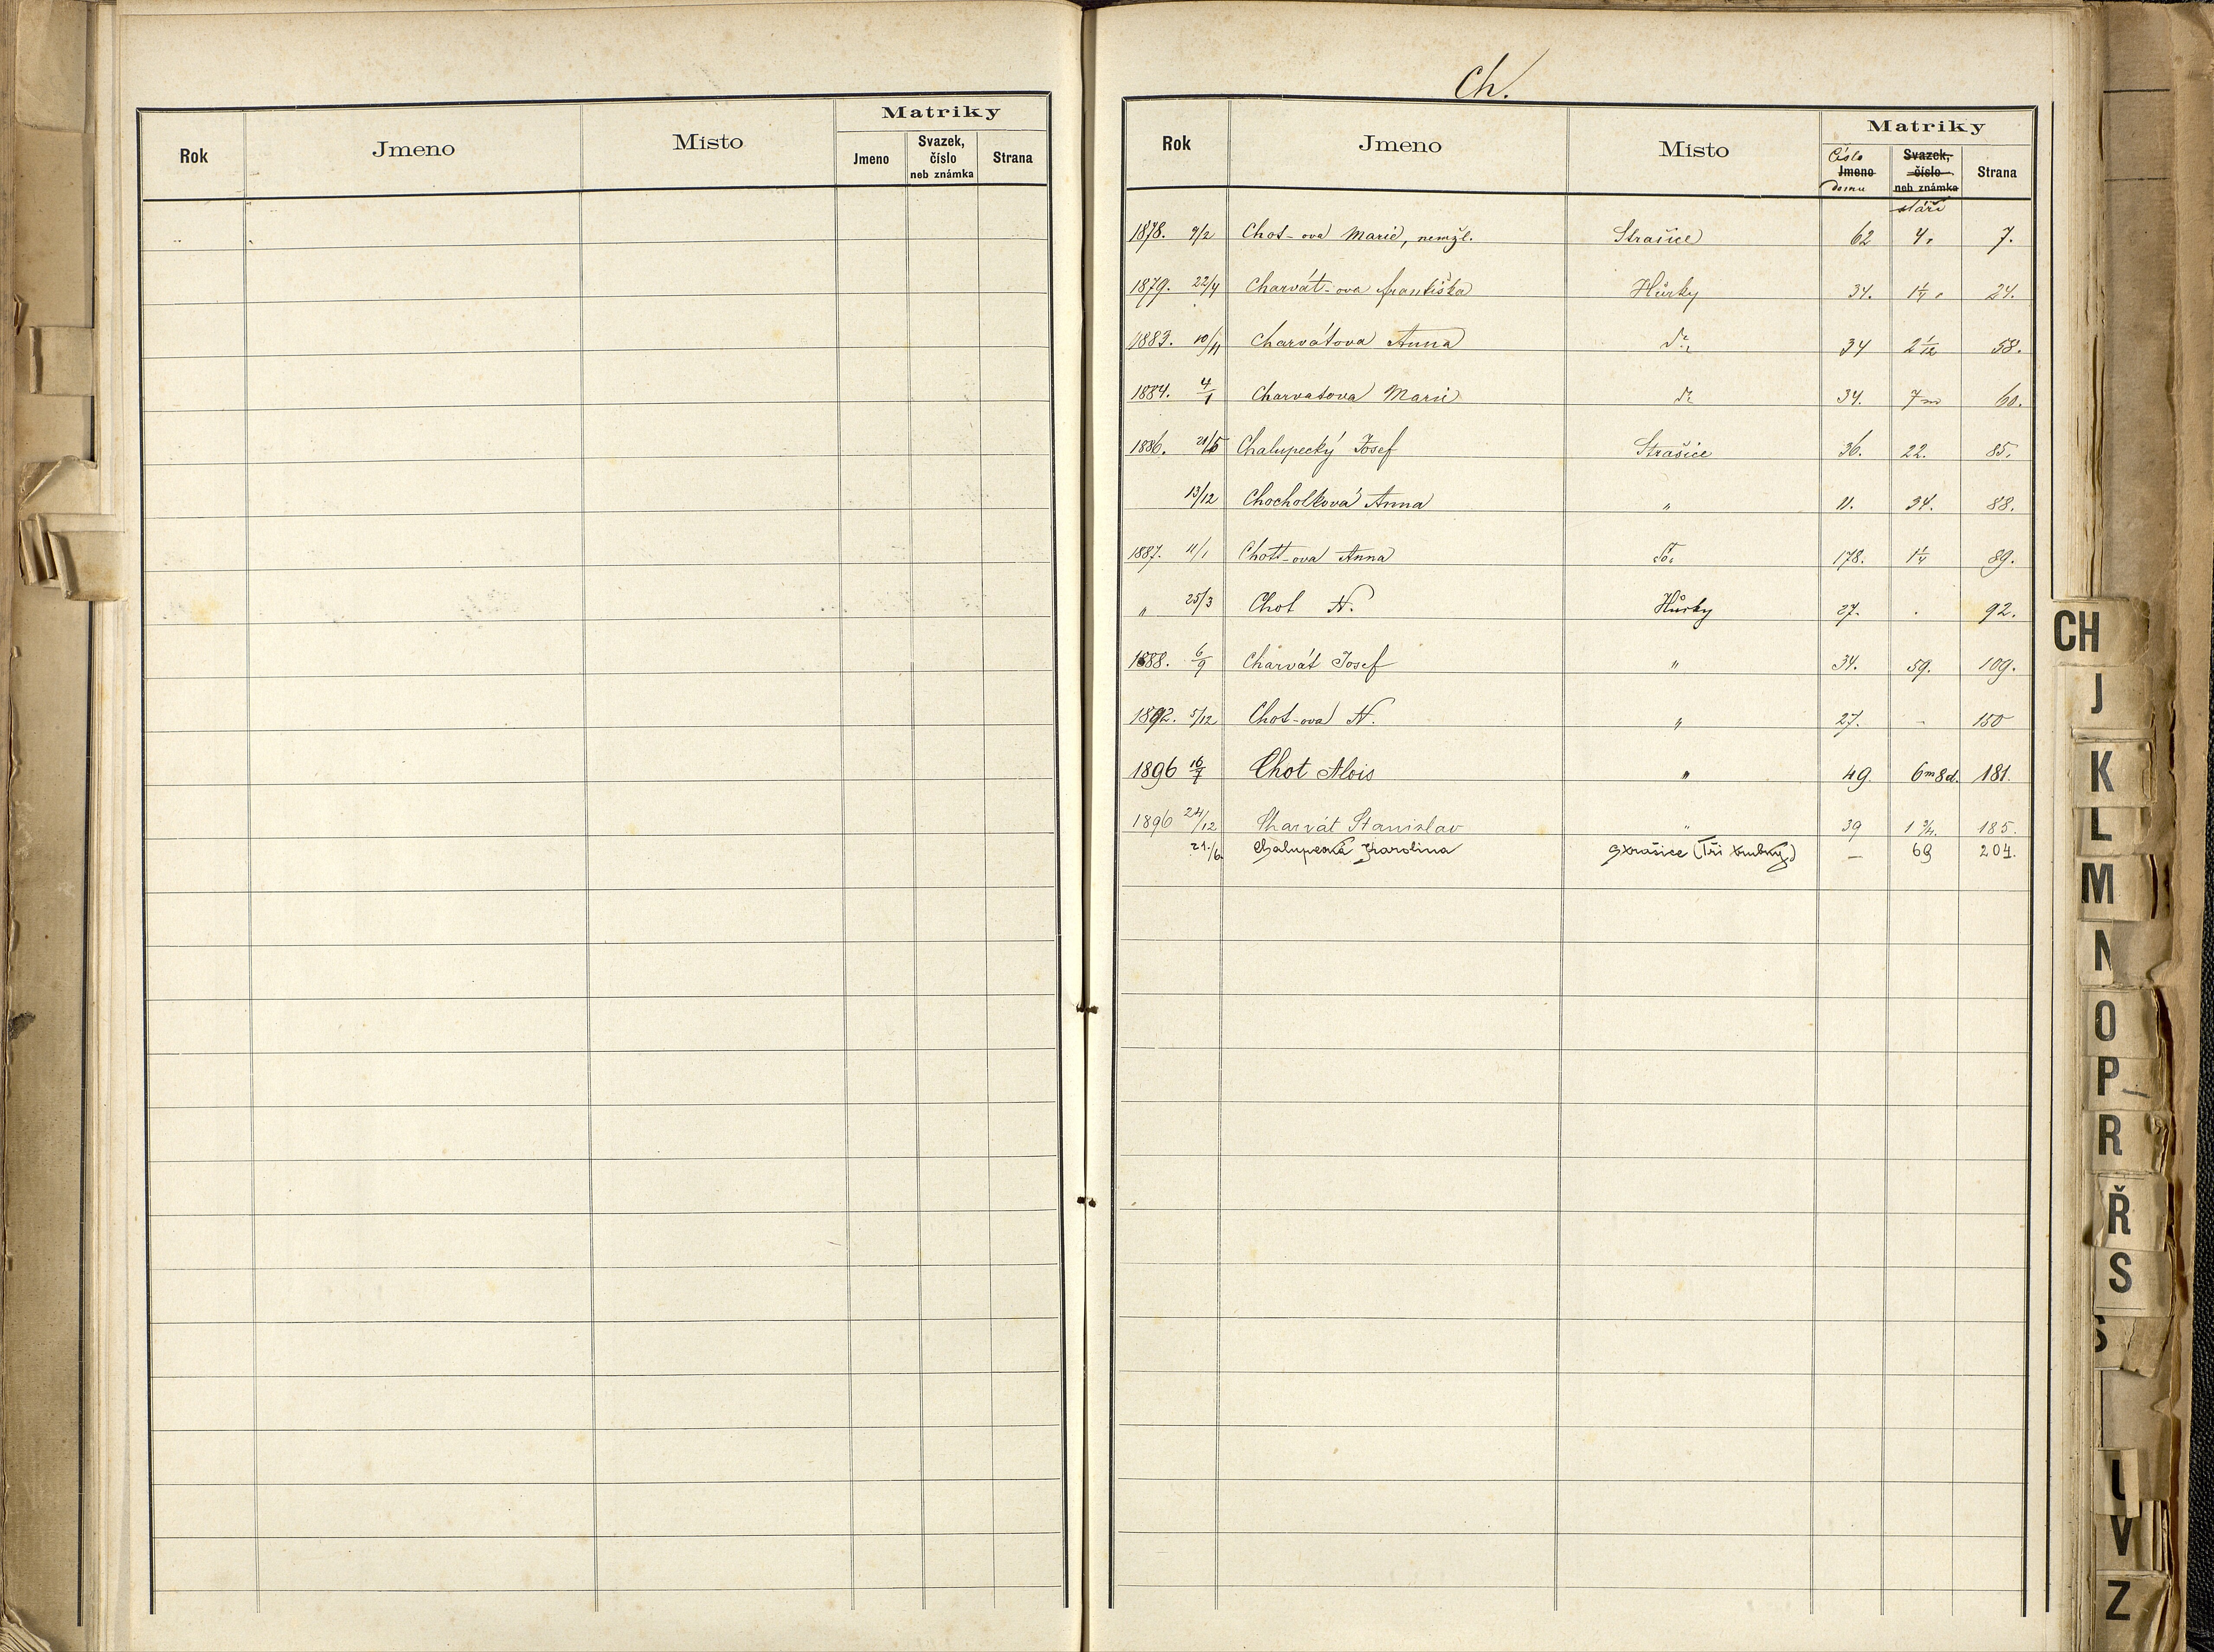 Rok Jmeno Místo Matriky
Jmeno Svazek, číslo neb známka Strana
Ch.
Rok Jmeno Místo Matriky
Číslo Jmeno domu Svazek, číslo neb známka stáří Strana
1878. 9/2 Chot-ova Marie, nemžl. Strašice 62 4. 7.
1879. 22/4 Charvát-ova Františka Hůrky 34. 1 1/4 24.
1883. 10/11 Charvátova Anna dto 34 2 1/12 58.
1884. 4/1 Charvatova Marie dto 34. 7m 60.
1886. 21/5 Chalupecký Josef Strašice 36. 22. 85.
13/12 Chocholková Anna " 11. 34. 88.
1887. 11/1 Chott-ova Anna 178. 1 1/4 89.
" 25/3 Chot N. Hůrky 27. . 92.
1888. 6/9 Charvát Josef " 34. 59. 109.
1892. 5/12 Chot-ova N. " 27. - 150
1896 16/7 Chot Alois " 49 6m8d. 181.
1896 24/12 Charvát Stanislav " 39 1 3/4. 185.
21./6. Chalupecká Karolina Strašice (Tři trubky) — 69 204.
CH
J
K
L
M
N
O
P
R
Ř
S
Š
U
V
Z